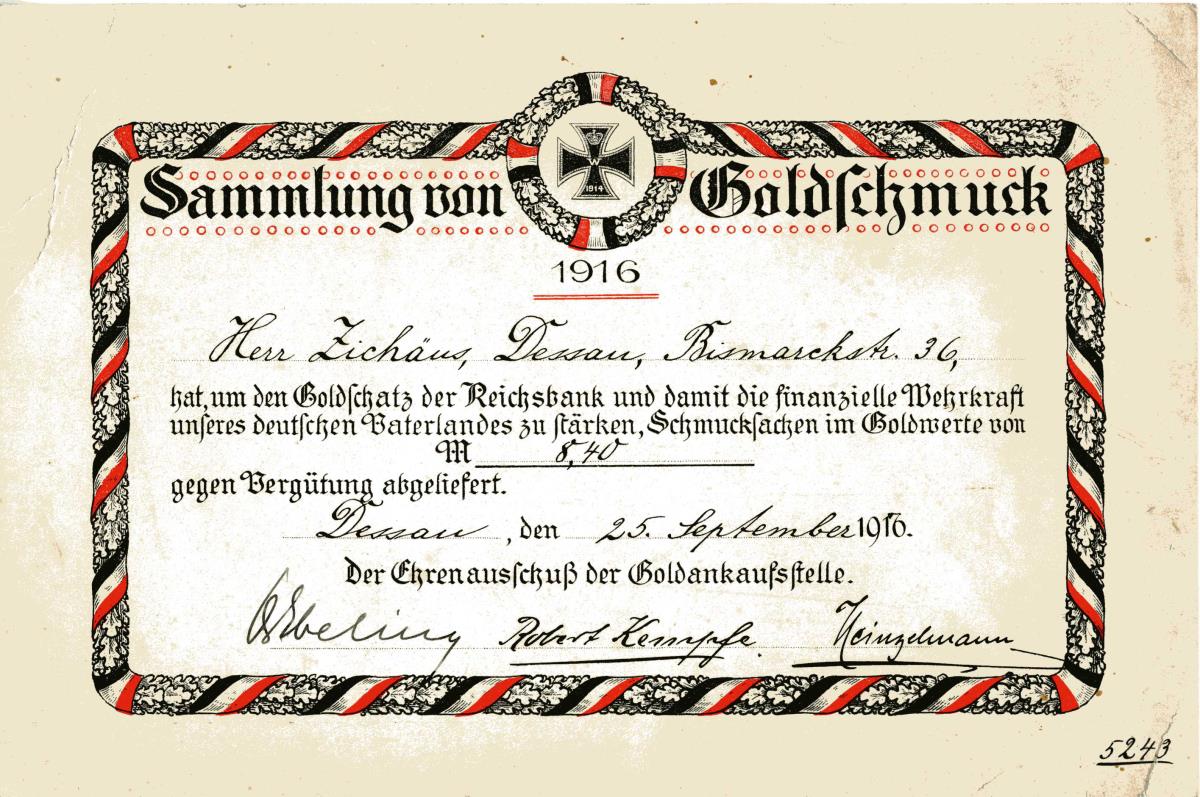 W
1914
Sammlung von Goldschmuck
1916
Herr Zichäus, Dessau, Bismarckstr. 36,
hat, um den Goldschatz der Reichsbank und damit die finanzielle Wehrkraft
unseres deutschen Vaterlandes zu stärken, Schmucksachen im Goldwerte von
M 8,40
gegen Vergütung abgeliefert.
Dessau, den 25. September 1916.
Der Ehrenausschuß der Goldankaufsstelle.
Ebeling Robert Kempfe. Heinzelmann
5243